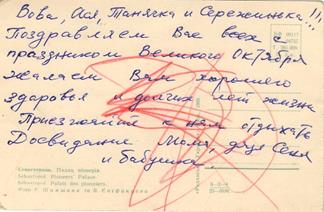 Вова, Ася, Танячка и Сережинька...!!!
Поздравляем Вас всех с
праздником Великого Октября
желаем Вам хорошего
здоровья и долгих лет жизни
Приезжайте к нам отдыхать
Досвидания Мама, дядя Сеня
и бабушка.
Севастополь. Палац піонерів.
Sebastopol. Pioneers' Palace.
Sebastopol. Palais des pionniers.
Фото Р. Якименка та В. Єпіфанова